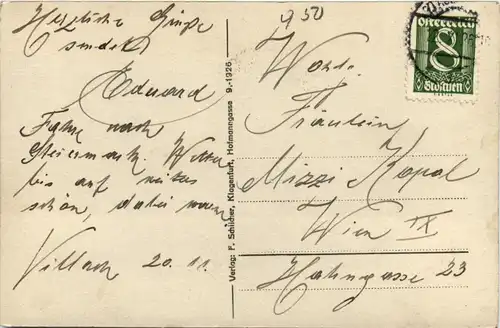 Herzliche Grüße
sendet
Eduard
Fahre nach
Steiermark. Wetter
bis auf weiteres
schön, dabei warm
Villach 20. 11.
Verlag: F. Schilcher, Klagenfurt, Hofmanngasse 9.-1926.
9 50
Österreich
8
Groschen
Wohl.
Fräulein
Mizzi Kopal
Wien IX
Hahngasse 23